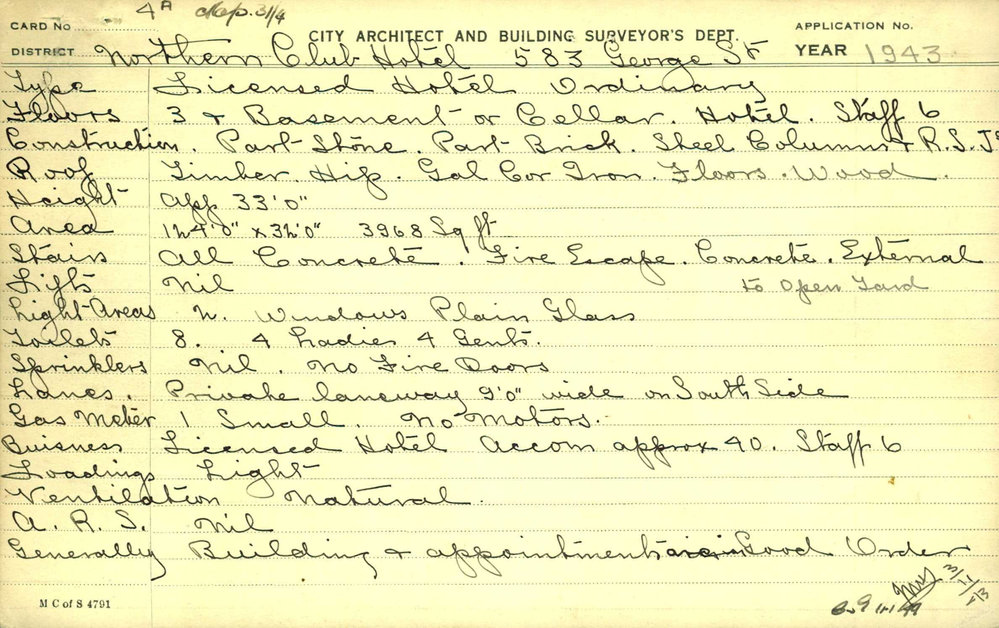 4A Map. 31/4
CARD No
CITY ARCHITECT AND BUILDING SURVEYOR'S DEPT.
APPLICATION No.
DISTRICT Northern Club Hotel 583 George St YEAR 1943
Type Licensed Hotel Ordinary
Floors 3 & Basement or Cellar. Hotel. Staff 6
Construction. Part Stone. Part Brick. Steel Columns & R.S.Js
Roof Timber Hip. Gal Cor Iron. Floors. Wood.
Height app 33'0"
Area 124'0" x 32'0" 3968 Sq ft
Stairs All Concrete. Fire Escape. Concrete. External
Lifts Nil to Open Yard
Light Areas 2. Windows Plain Glass
Toilets 8. 4 Ladies 4 Gents.
Sprinklers Nil. No Fire Doors
Lanes. Private laneway 9'0" wide on South Side
Gas Meter 1 Small. No Motors.
Buisness Licensed Hotel Accom approx 40. Staff 6
Loadings Light
Ventilation Natural.
A. R. S. Nil
Generally Building & appointments in Good Order
3/11/43
M C of S 4791